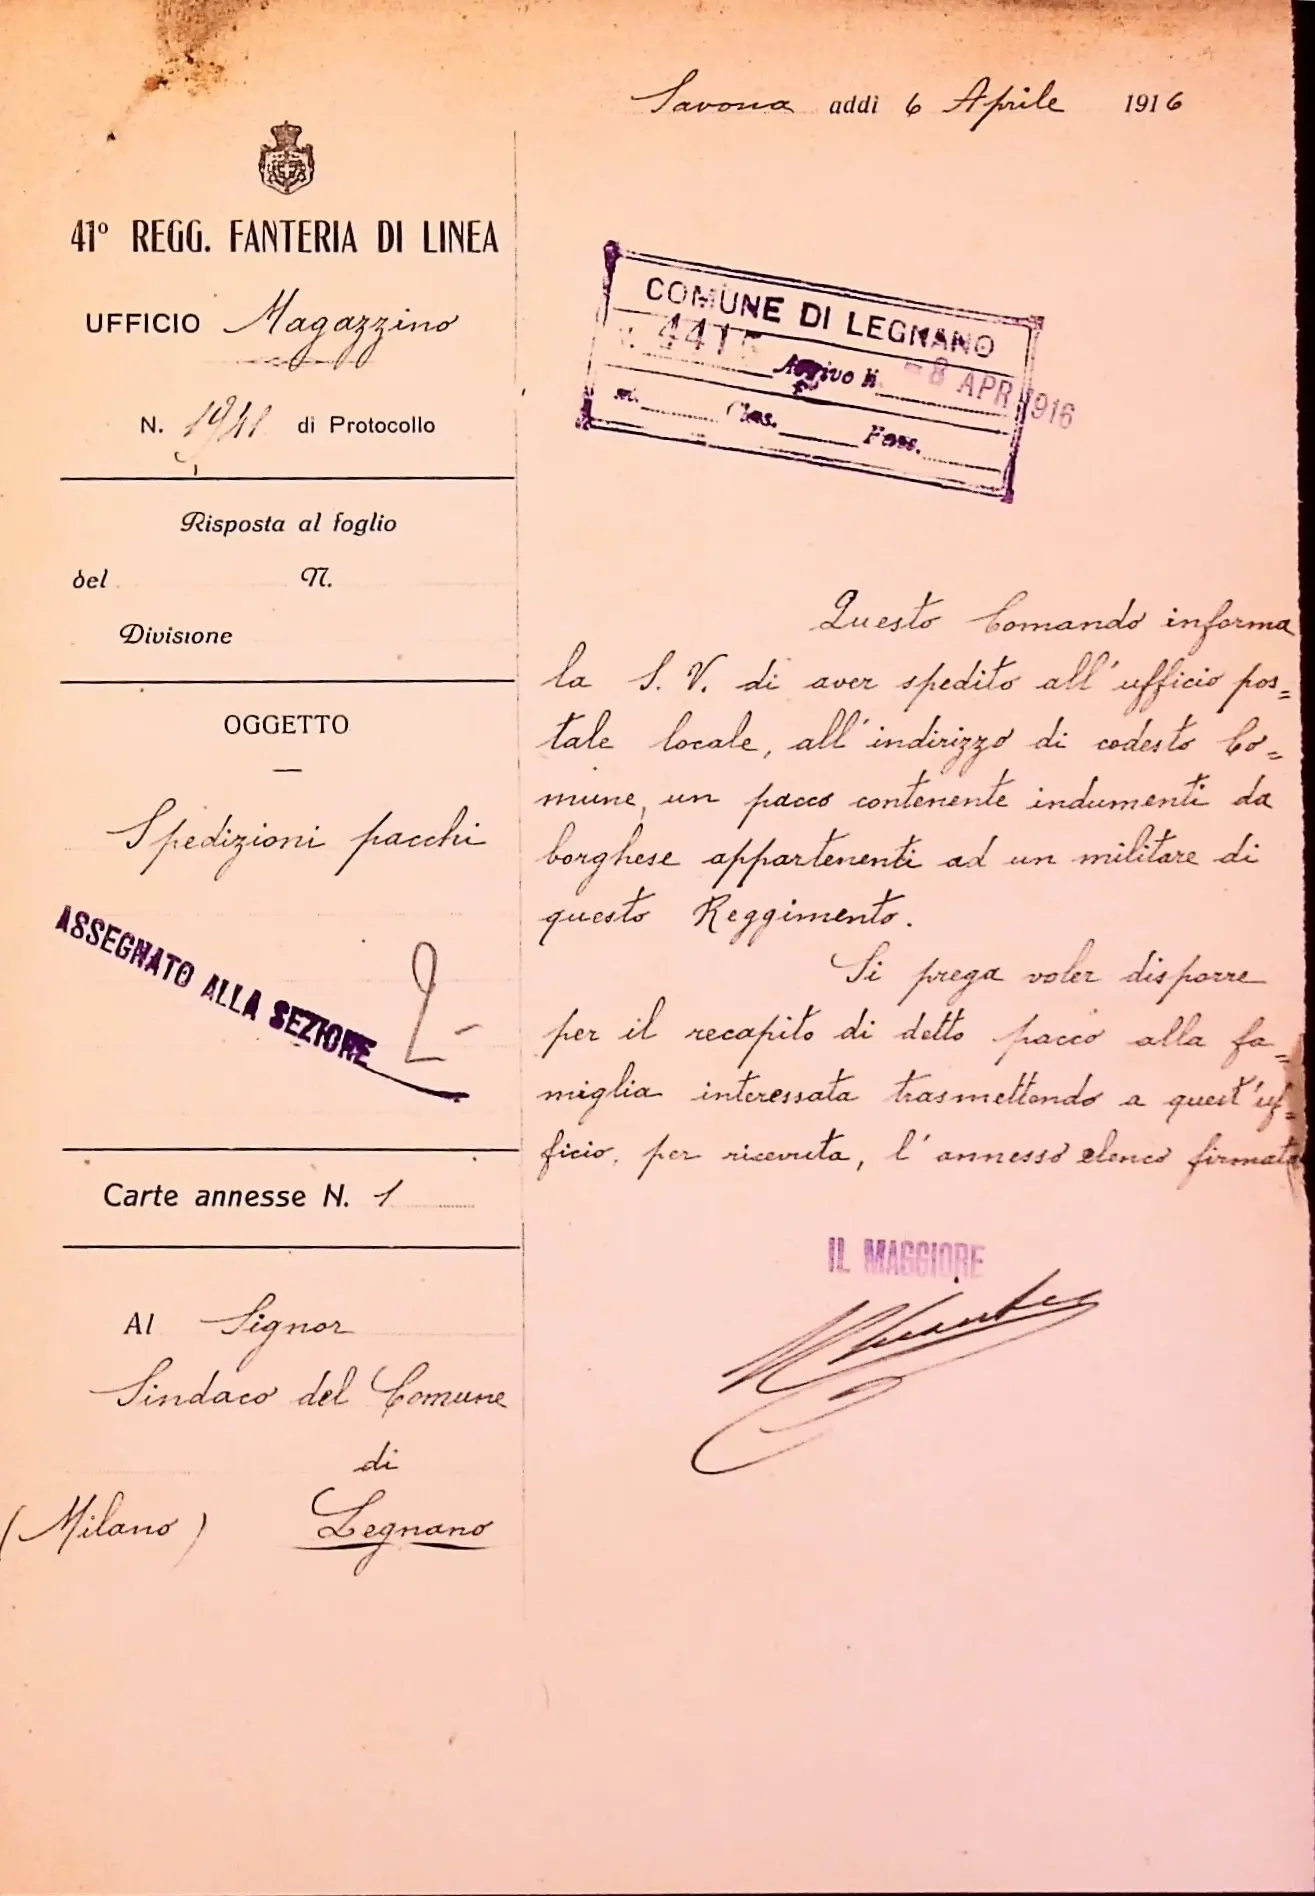 Savona addì 6 Aprile 1916
41º REGG. FANTERIA DI LINEA
UFFICIO Magazzino
N. 1941 di Protocollo
Risposta al foglio
del N.
Divisione
OGGETTO
Spedizioni pacchi
ASSEGNATO ALLA SEZIONE 2
Carte annesse N. 1
Al Signor
Sindaco del Comune
di
(Milano) Legnano
COMUNE DI LEGNANO
Arrivo il -8 APR 1916
Clas. Fasc.
Questo Comando informa
la S. V. di aver spedito all'ufficio pos=
tale locale, all'indirizzo di codesto Co=
mune, un pacco contenente indumenti da
borghese appartenenti ad un militare di
questo Reggimento.
Si prega voler disporre
per il recapito di detto pacco alla fa=
miglia interessata trasmettendo a quest'uf=
ficio, per ricevuta, l'annesso elenco firmato
IL MAGGIORE